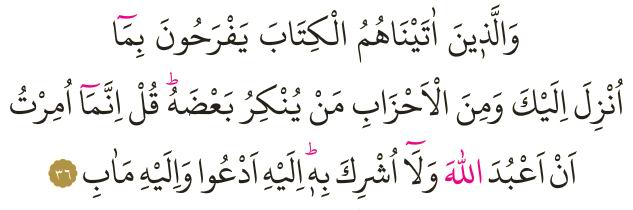 وَالَّذ۪ينَ اٰتَيْنَاهُمُ الْكِتَابَ يَفْرَحُونَ بِمَٓا
اُنْزِلَ اِلَيْكَ وَمِنَ الْاَحْزَابِ مَنْ يُنْكِرُ بَعْضَهُۜ قُلْ اِنَّمَٓا اُمِرْتُ
اَنْ اَعْبُدَ اللّٰهَ وَلَٓا اُشْرِكَ بِه۪ۜ اِلَيْهِ اَدْعُوا وَاِلَيْهِ مَاٰبِ ﴿٣٦﴾